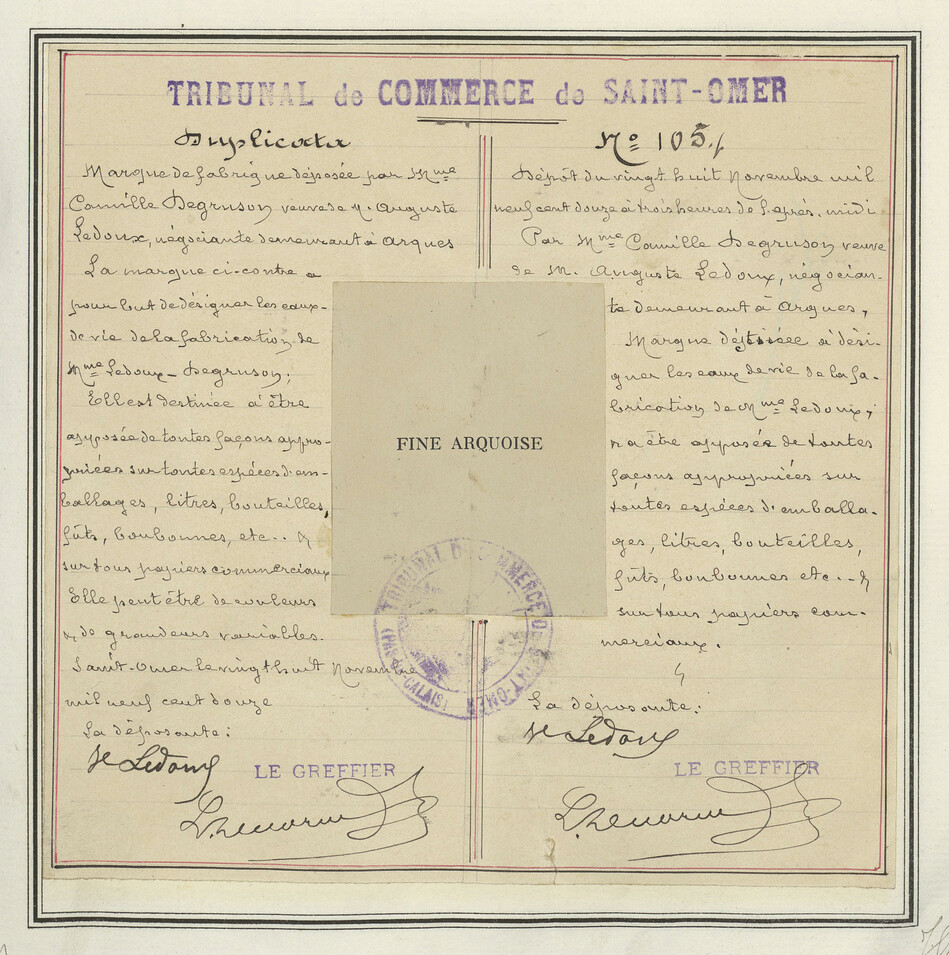 TRIBUNAL de COMMERCE de SAINT-OMER
Duplicata
Marque de fabrique déposée par Mme
Camille Degruson veuve de M. Auguste
Ledoux, négociante demeurant à Arques
La marque ci-contre a
pour but de désigner les eaux-
de vie de la fabrication de
Mme Ledoux-Degruson;
Elle est destinée à être
apposée de toutes façons appro-
priées sur toutes espèces d'em-
ballages, litres, bouteilles,
fûts, bonbonnes, etc.. &
sur tous papiers commerciaux
Elle peut être de couleurs
& de grandeurs variables.
Saint-Omer le vingt huit Novembre
mil neuf cent douze
La déposante:
Ve Ledoux
LE GREFFIER
FINE ARQUOISE
TRIBUNAL DE COMMERCE DE SAINT-OMER
(PAS-DE-CALAIS)
No 105
Dépôt du vingt huit Novembre mil
neuf cent douze à trois heures de l'après-midi
Par Mme Camille Degruson veuve
de M. Auguste Ledoux, négocian-
te demeurant à Arques,
Marque destinée à dési-
gner les eaux de vie de la fa-
brication de Mme Ledoux,
& à être apposée de toutes
façons appropriées sur
toutes espèces d'emballa-
ges, litres, bouteilles,
fûts, bonbonnes etc.. &
sur tous papiers com-
merciaux.
La déposante:
Ve Ledoux
LE GREFFIER